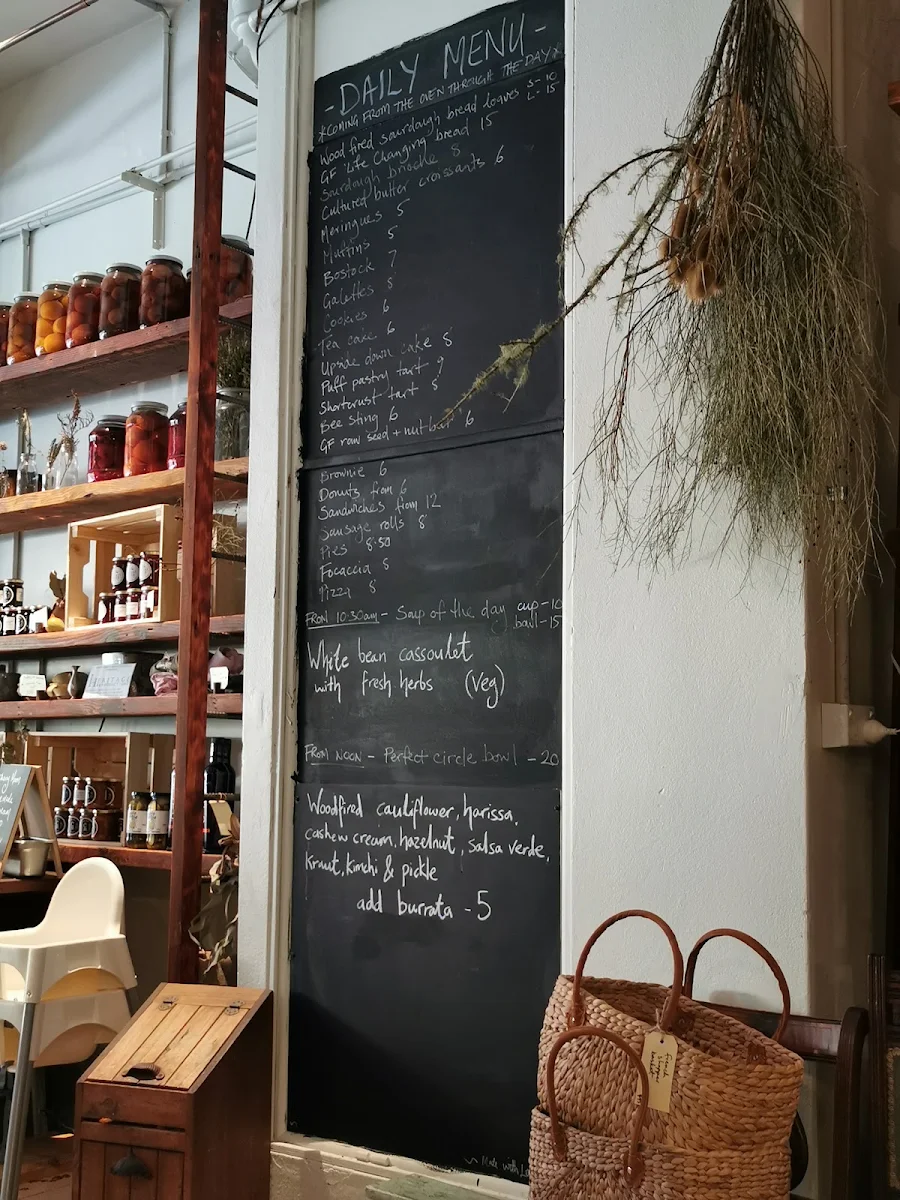 - DAILY MENU -
*COMING FROM THE OVEN THROUGH THE DAY*
Wood fired sourdough bread loaves S-10 L-15
GF 'Life Changing bread 15
Sourdough brioche 8
Cultured butter croissants 6
Meringues 5
Muffins 5
Bostock 7
Galettes 8
Cookies 6
Tea cake 6
Upside down cake 8
Puff pastry tart 9
Shortcrust tart 8
Bee sting 6
GF raw seed + nut bar 6
Brownie 6
Donuts from 6
Sandwiches from 12
Sausage rolls 8
Pies 8.50
Focaccia 8
Pizza 8
FROM 10:30am - Soup of the day cup-10
bowl-15
White bean cassoulet
with fresh herbs (veg)
FROM NOON - Perfect circle bowl - 20
Woodfired cauliflower, harissa,
cashew cream, hazelnut, salsa verde,
kraut, kimchi & pickle
add burrata - 5